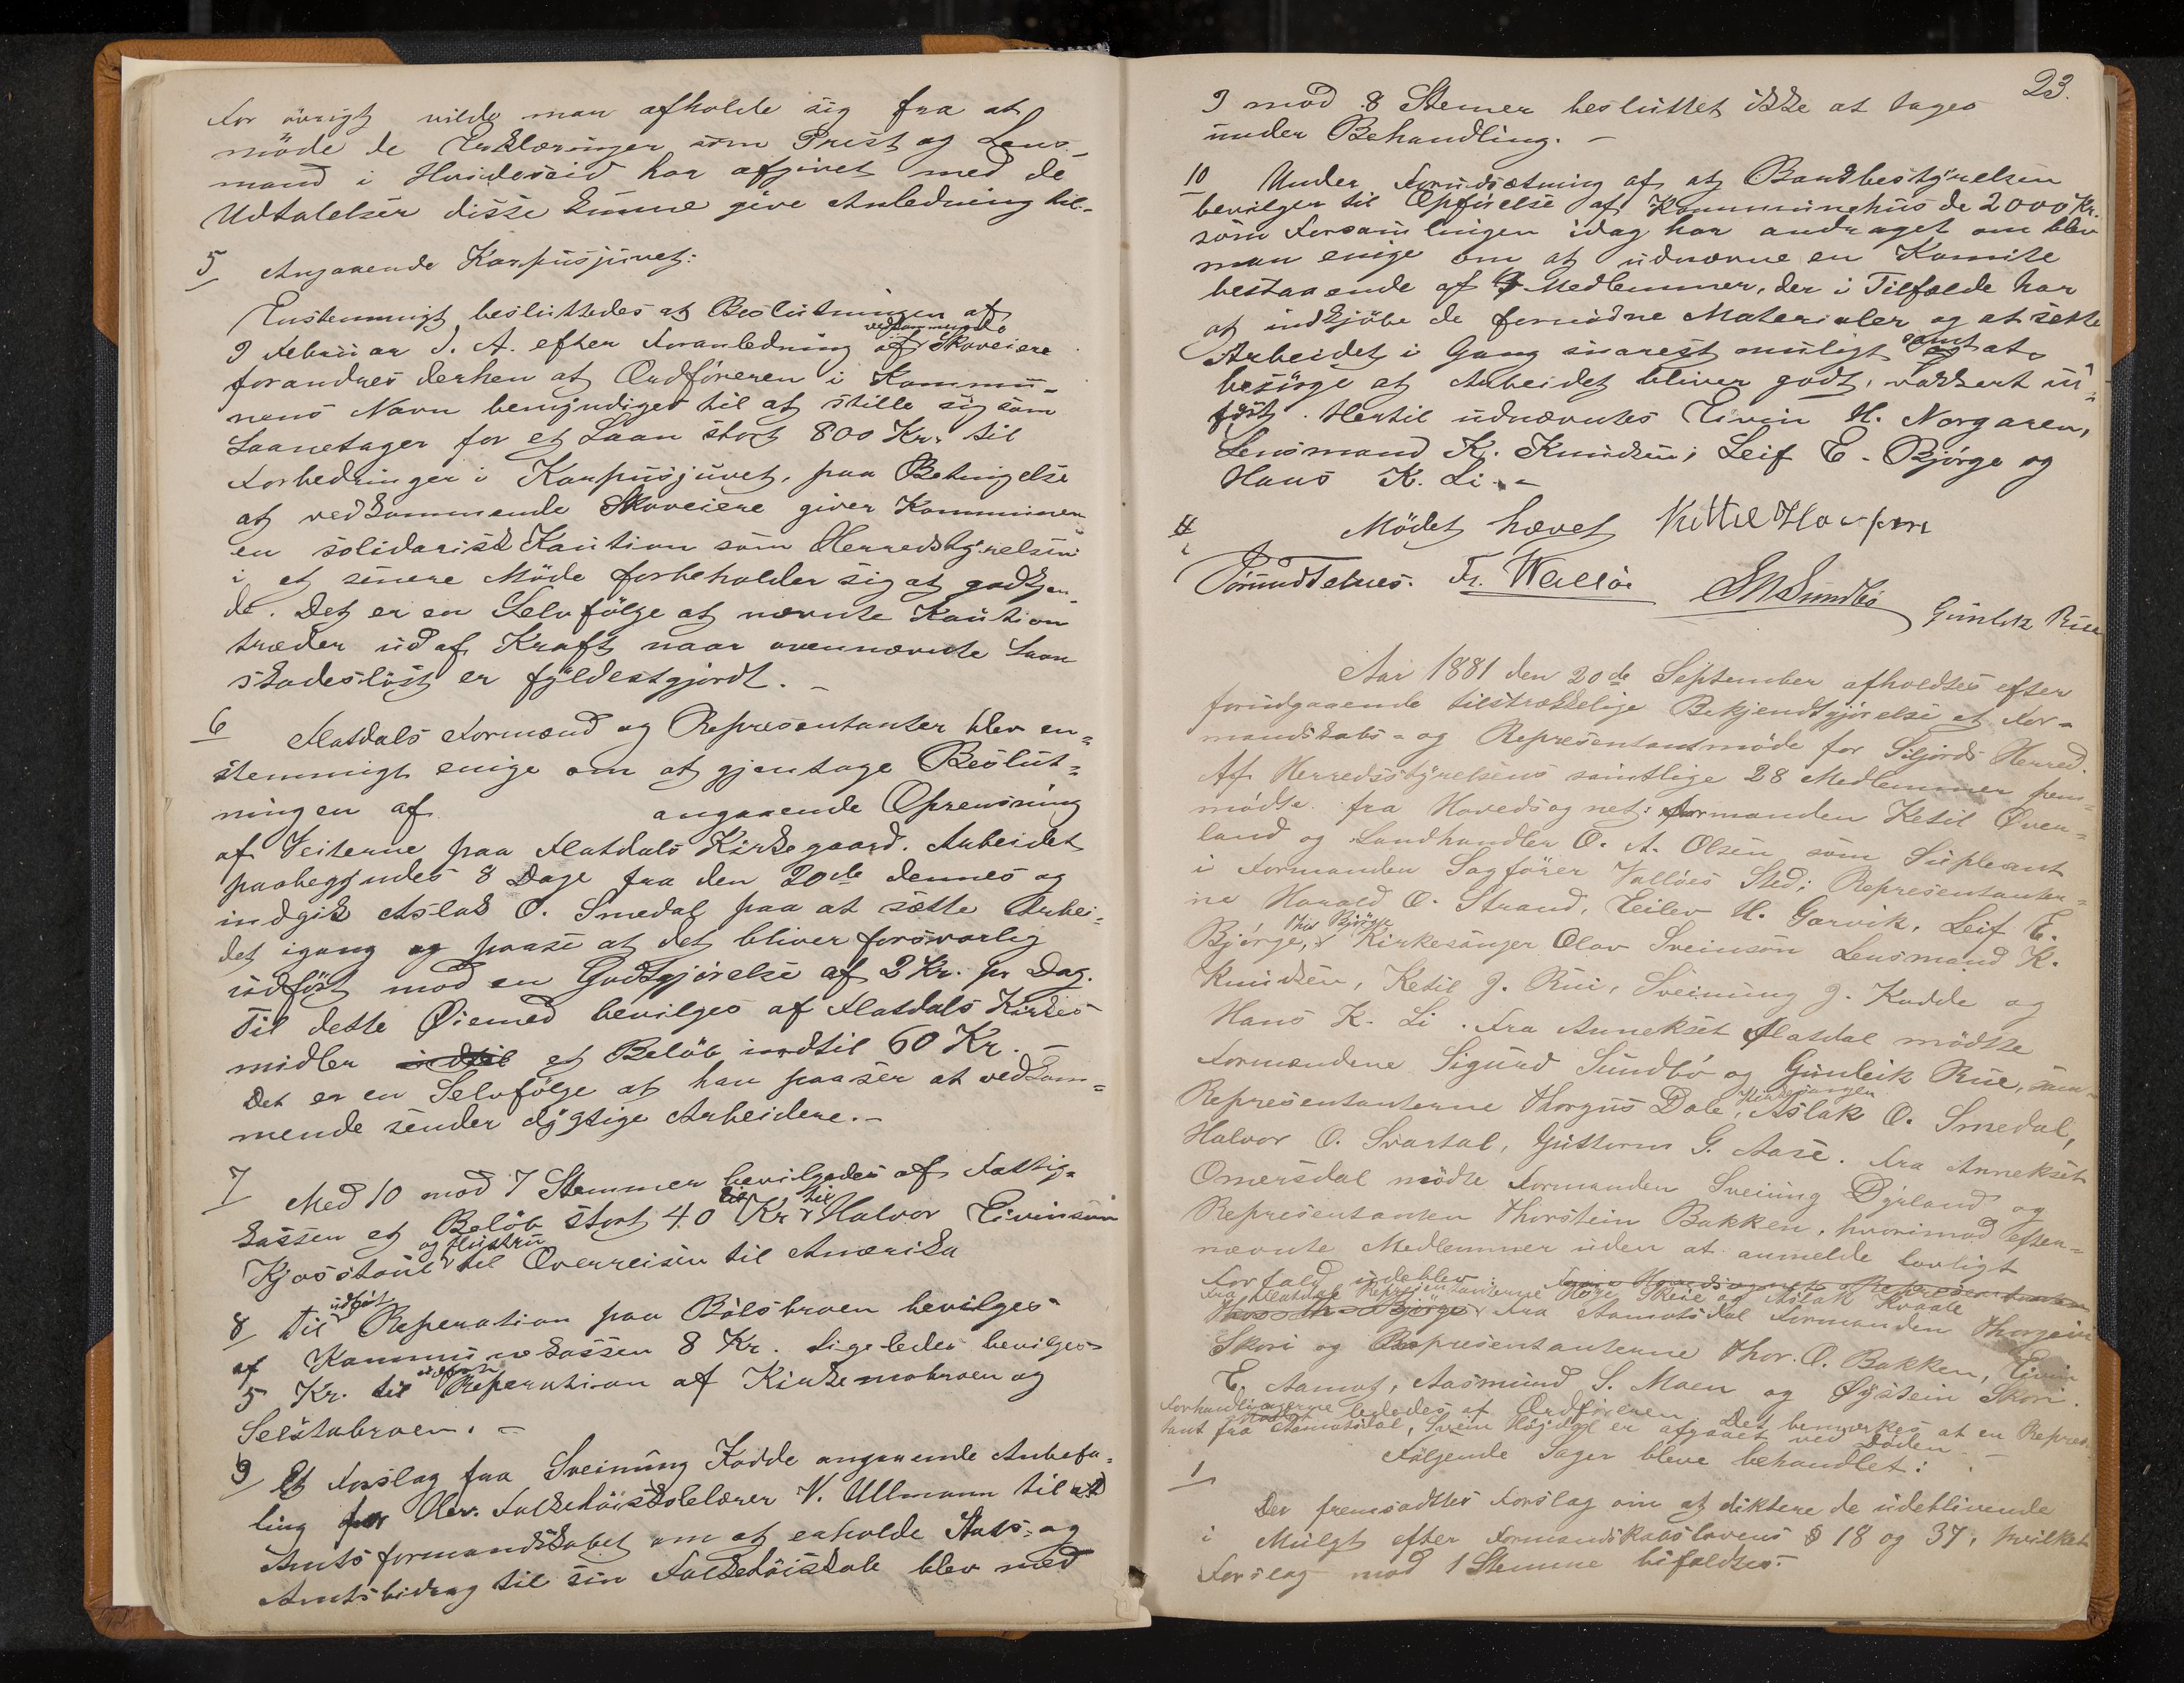 For övrigt vilde man afholde sig fra at
möde de Erklæringer som Prest og Lens-
mand i Hvideseid har afgivet med de
Udtalelser disse kunne give Anledning til.
5 Angaaende Karpusjuvet:
Enstemmigt besluttedes at Beslutningen af
9 Februar d. A. efter Foranledning af vedkommende Skoveiere
forandres derhen at Ordföreren i Kommu-
nens Navn bemyndiges til at stille sig som
Laanetager for et Laan stort 800 Kr. til
Forbedringer i Karpusjuvet, paa Betingelse
at vedkommende Skoveiere giver Kommunen
en solidarisk Kaution som Herredstyrelsen
i et senere Möde forbeholder sig at godkjen-
de. Det er en Selvfölge at nævnte Kaution
træder ud af Kraft naar ovennævnte Laan
skadeslöst er fyldestgjordt. –
6 Flatdals Formænd og Repræsentanter blev en-
stemmigt enige om at gjentage Beslut-
ningen af angaaende Oprensning
af Veiterne paa Flatdals Kirkegaard. Arbeidet
paabegyndes 8 Dage fra den 20de dennes og
indgik Aslak O. Smedal paa at sætte Arbei-
det igang og paase at det bliver forsvarlig
udfört mod en Godtgjörelse af 2 Kr. pr Dag.
Til dette Øiemed bevilges af Flatdals Kirkes
midler indtil et Belöb indtil 60 Kr. –
Det er en Selvfölge at han paaser at vedkom-
mende sender dygtige Arbeidere. –
7 Med 10 mod 7 Stemmer bevilgedes af Fattig-
kassen et Belöb stort 40 Kr til Halvor Eivinson
Kjosstaul og Hustru til Overreisen til Amerika
8 Til udfört Reperation paa Bölsbroen bevilges
af Kommunekassen 8 Kr. Ligeledes bevilges
5 Kr. til udfört Reperation af Kirkemobroen og
Selstabroen. –
9 Et Forslag fra Sveinung Kodde angaaende Anbefa-
ling for Hr. Folkehöiskolelærer V. Ullmann til
Amtsformandskabet om at erholde Stats- og
Amtsbidrag til sin Folkehöiskole blev med
23.
9 mod 8 Stemer besluttet ikke at tages
under Behandling. –
10 Under Forudsætning af at Bandbestyrelsen
bevilger til Opförelse af Kommunehus de 2000 Kr.
som Forsamlingen idag har andraget om blev
man enige om at udnævne en Komite
bestaaende af Medlemmer, der i Tilfælde har
at indkjöbe de fornödne Materialer og at sætte
Arbeidet i Gang snarest muligt samt at
besörge at Arbeidet bliver godt, vakkert ud-
fört. Hertil udnævntes Eivin H. Norgaren,
Lensmand K. Knudsen, Leif E. Bjørge og
Hans K. Li. –
Mödet hævet Kittel Haugen
Fr. Wallöe SNSundbö Gunleik Rue
Aar 1881 den 20de September afholdtes efter
forudgaaende tilstrækkelige Bekjendtgjörelse et For-
mandskabs- og Repræsentantmöde for Siljords Herred.
Af Herredsstyrelsens samtlige 28 Medlemmer frem-
mödte fra Hovedsognet: Formanden Ketil Øver-
land og Landhandler O. A. Olsen som Supleant
i Formanden Sagförer Vallöes Sted; Representanter-
ne Harald O. Strand, Eilev H. Garvik, Leif E.
Bjørge, Ths Björge Kirkesanger Olav Sveinson Lensmand K.
Knudsen, Ketil J. Rui, Sveinung J. Kodde og
Hans K. Li. Fra Annekset Flatdal mödte
Formændene Sigurd Sundbö og Gunleik Rue, sam-
Representanterne Thorgus Dale, Kirkesanger Aslak O. Smedal,
Halvor O. Svartal, Guttorm G. Aase. Fra Annekset
Omersdal mödte Formanden Sveinung Dyrland og
Representanten Thorstein Bakken, hvorimod efter-
nævnte Medlemmer uden at anmelde lovligt
Forfald udeblev: Fra Hovedsognet Representanten
Fra Flatdal Representanterne Skeie og Aslak Kvaale
Fra Aamotsdal Formanden Thorgrim
Skori og Representanterne Thor. O. Bakken, Eivin
E. Aamot, Aasmund S. Moen og Øystein Skori.
Forhandlingerne lededes af Ordföreren. Det bemærkes at en Repræsen-
tant fra Aamotsdal, Svein er afgaaet ved Döden.
Fölgende Sager bleve behandlet:
1 Der fremsattes Forslag om at diktere de udeblivende
i Mulgt efter Formandskabslovens § 18 og 37, hvilket
Forslag mod 1 Stemme bifaldtes.